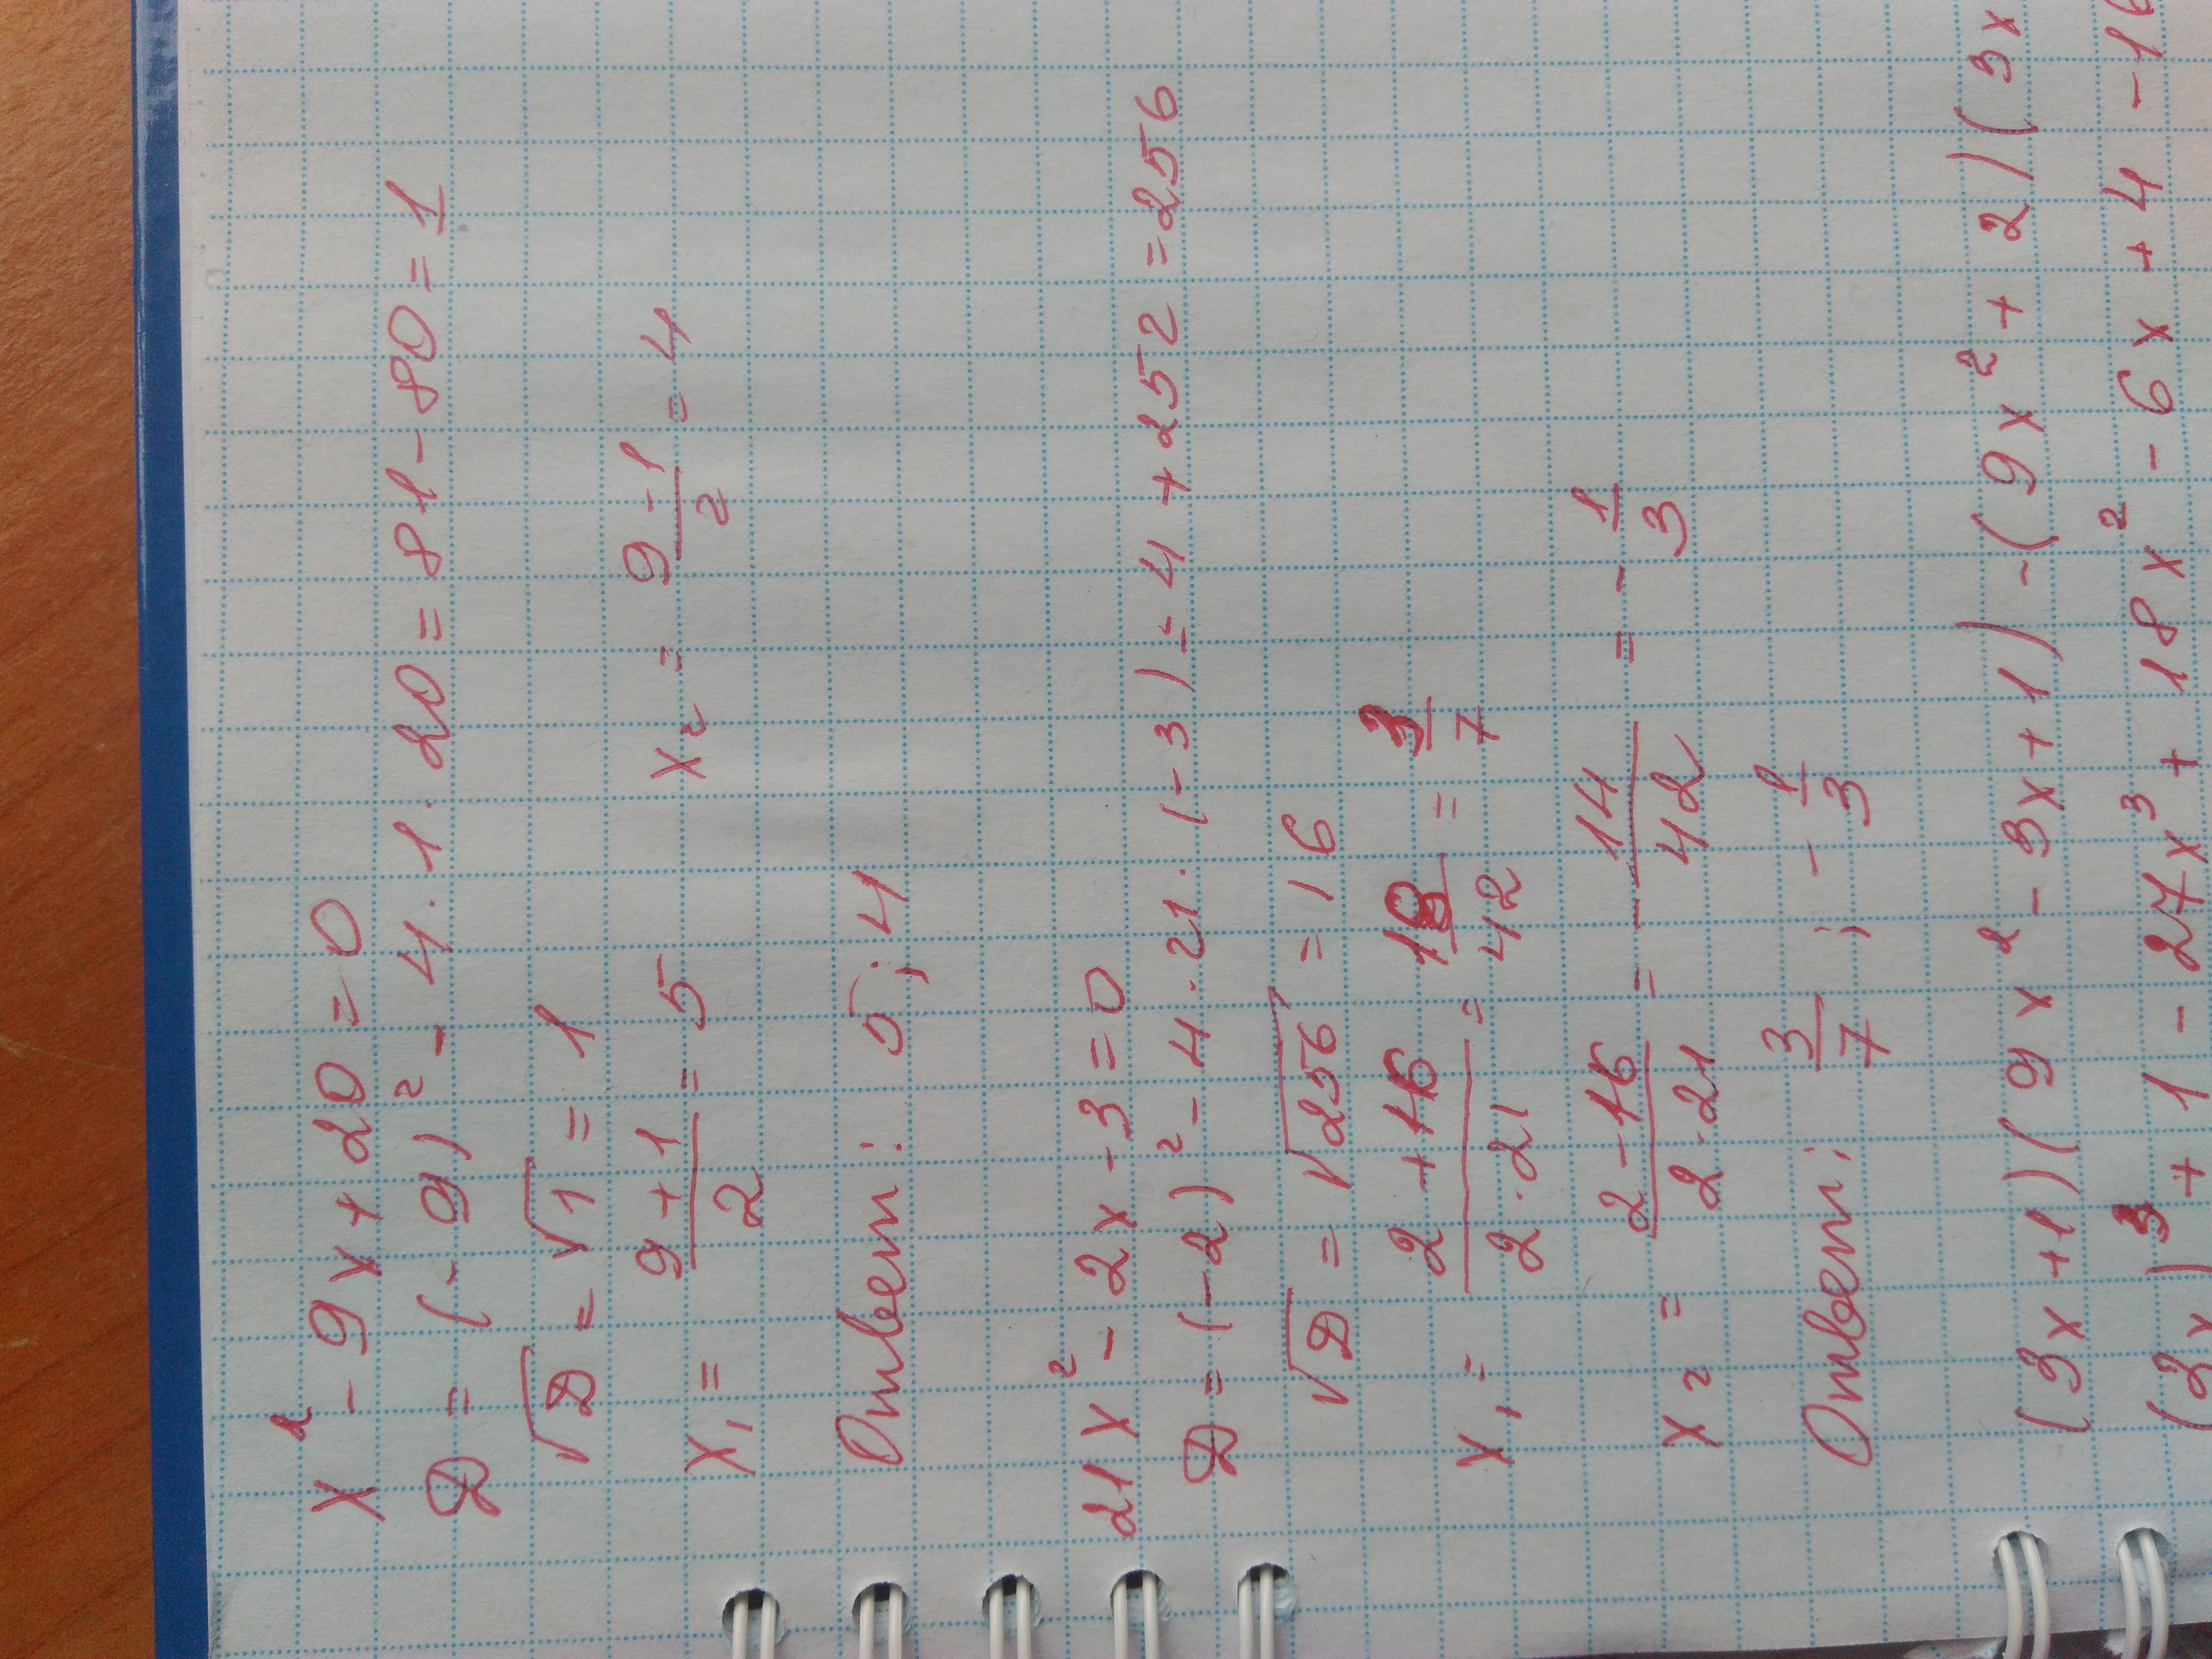 x² - 9x + 20 = 0
D = (-9)² - 4·1·20 = 81 - 80 = 1
√D = √1 = 1
x₁ = (9+1)/2 = 5 x₂ = (9-1)/2 = 4
Ответ: 5; 4
21x² - 2x - 3 = 0
D = (-2)² - 4·21·(-3) = 4 + 252 = 256
√D = √256 = 16
x₁ = (2+16)/(2·21) = 18/42 = 3/7
x₂ = (2-16)/(2·21) = -14/42 = -1/3
Ответ: 3/7; -1/3
(3x+1)(9x² - 3x + 1) - (9x² + 2)(3x
(3x)³ + 1 - 27x³ + 18x² - 6x + 4 - 16